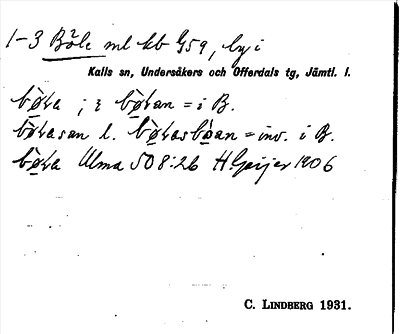 1-3 Böle ml kb G59, by i
Kalls sn, Undersåkers och Offerdals tg, Jämtl. l.
bø̀ɫa ; i bø̀ɫan = i B.
bø̀ɫasan l. bø̀ɫasbòan = inv. i B.
bø̀ɫa Ulma 508:26 H. Geijer 1906
C. LINDBERG 1931.